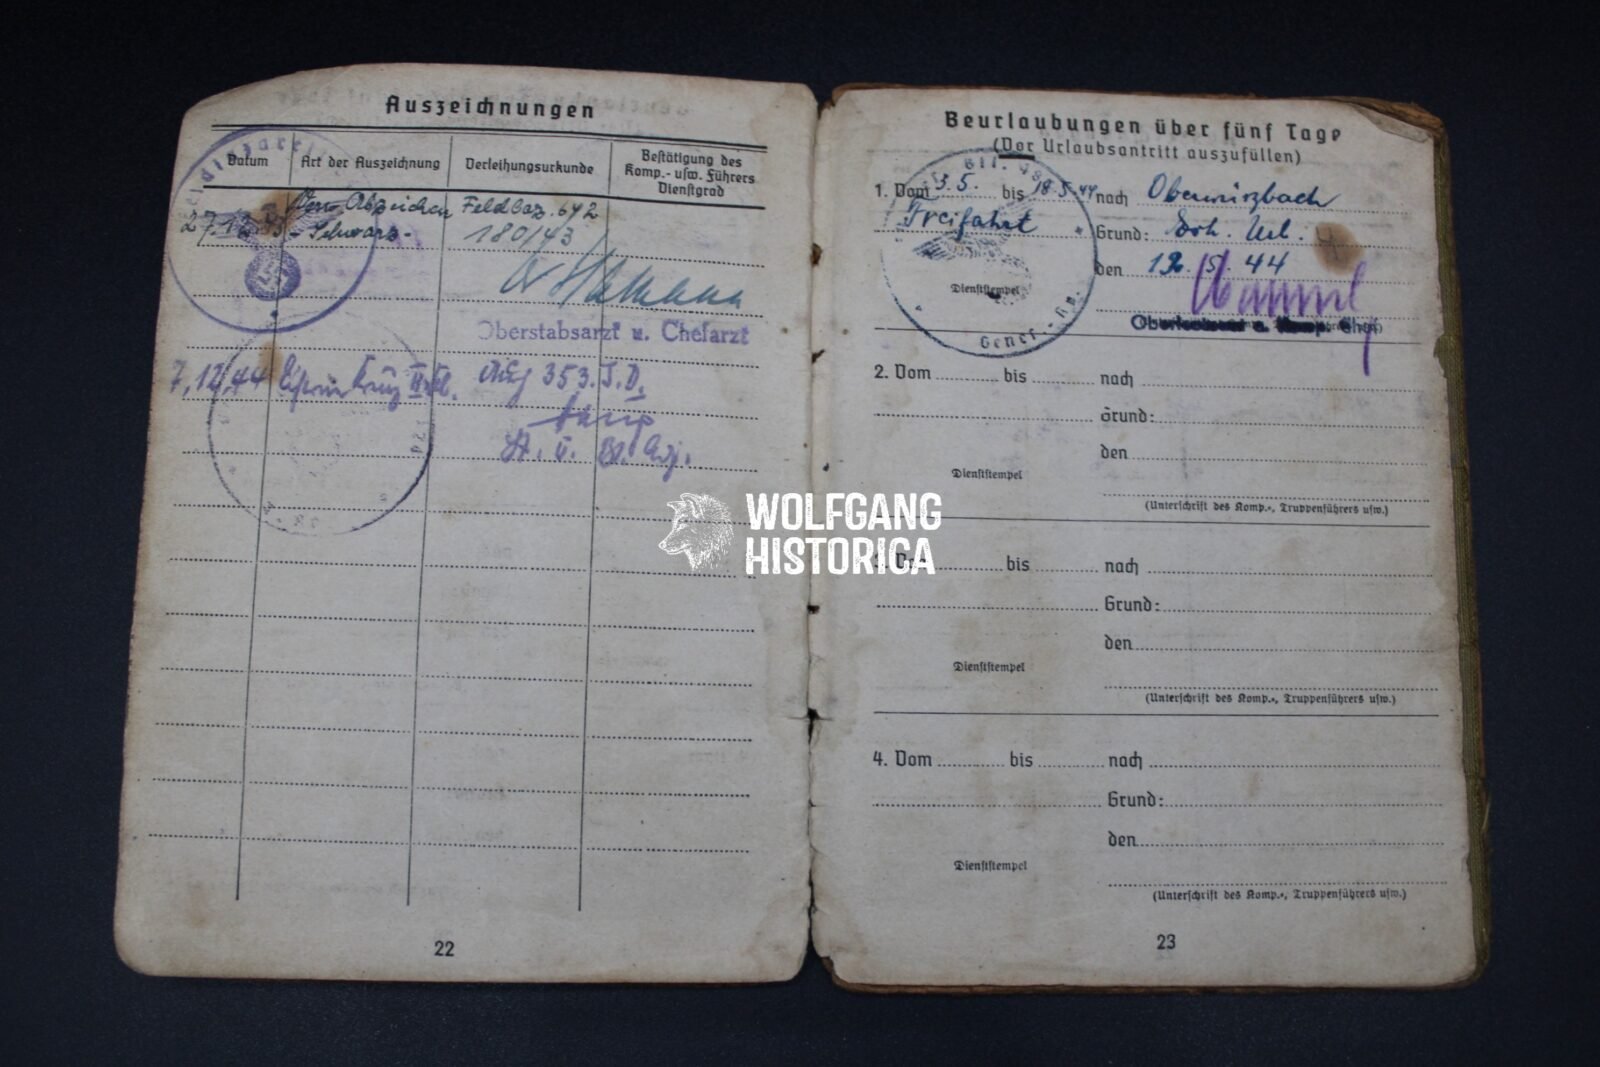 Auszeichnungen
Datum
Art der Auszeichnung
Verleihungsurkunde
Bestätigung des
Komp.- usw. Führers
Dienstgrad
27.12.43
Verw. Abzeichen
- Schwarz -
Feldlaz. 642
180/43
Oberstabsarzt u. Chefarzt
7.12.44
353. J. D.
22
Beurlaubungen über fünf Tage
(Vor Urlaubsantritt auszufüllen)
1. Vom 3.5. bis 18.5.44 nach Oberwürzbach
Freifahrt Grund: Url.
den 5 44
Dienststempel
2. Vom bis nach
Grund:
den
Dienststempel
(Unterschrift des Komp.-, Truppenführers usw.)
3. Vom bis nach
Grund:
den
Dienststempel
(Unterschrift des Komp.-, Truppenführers usw.)
4. Vom bis nach
Grund:
den
Dienststempel
(Unterschrift des Komp.-, Truppenführers usw.)
23
WOLFGANG
HISTORICA